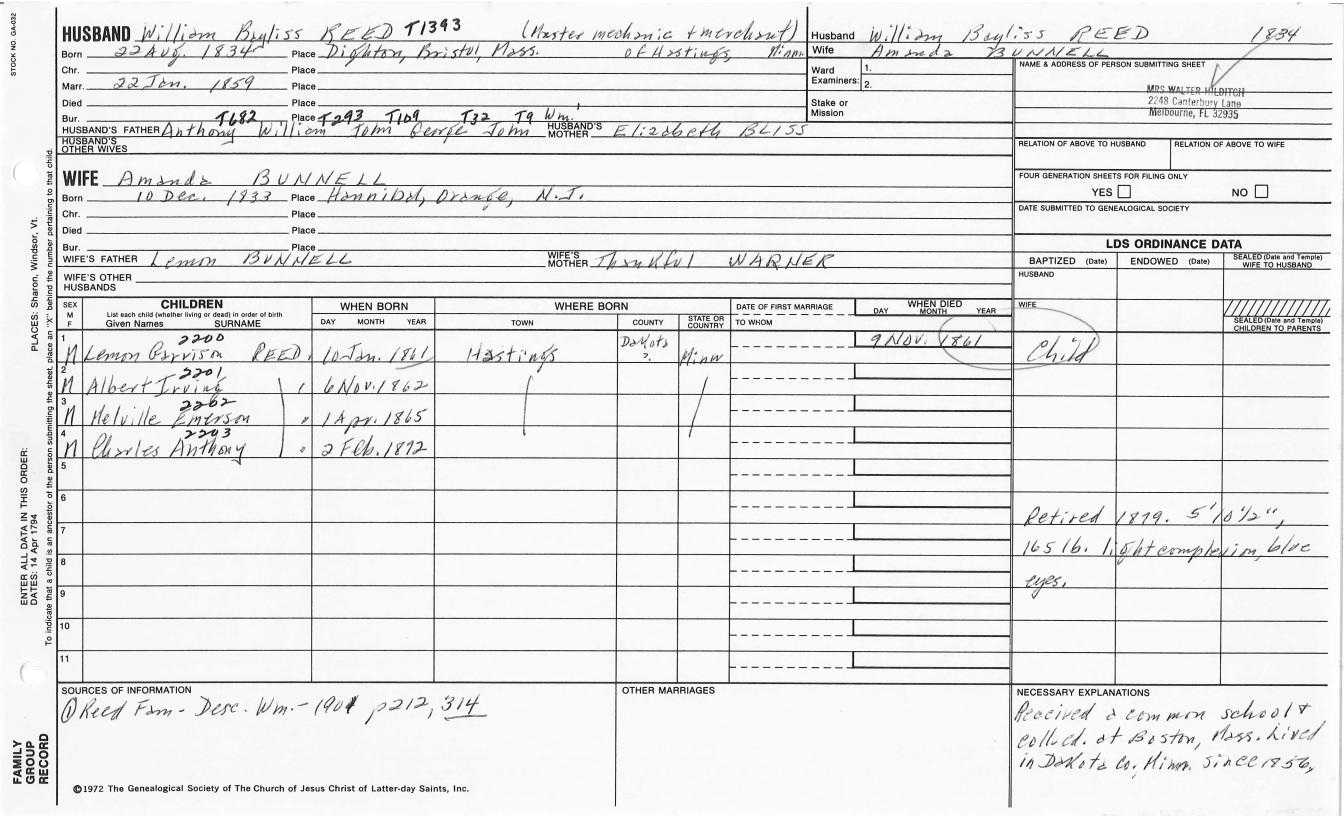 STOCK NO. GA-032
HUSBAND William Bayliss REED T1393 (Master mechanic & merchant)
Born 22 Aug. 1834 Place Dighton, Bristol, Mass. of Hastings, Minn.
Chr. Place
Marr. 22 Jan. 1859 Place
Died Place
Bur. Place
T682 T293 T109 T32 T9 Wm.
HUSBAND'S FATHER Anthony William John George John HUSBAND'S MOTHER Elizabeth BLISS
HUSBAND'S OTHER WIVES
Husband William Bayliss REED 1834
Wife Amanda BUNNELL
Ward Examiners: 1.
2.
Stake or Mission
NAME & ADDRESS OF PERSON SUBMITTING SHEET
MRS WALTER HILDITCH
2248 Canterbury Lane
Melbourne, FL 32935
RELATION OF ABOVE TO HUSBAND RELATION OF ABOVE TO WIFE
FOUR GENERATION SHEETS FOR FILING ONLY
YES NO
DATE SUBMITTED TO GENEALOGICAL SOCIETY
WIFE Amanda BUNNELL
Born 10 Dec. 1833 Place Hannibal, Orange, N.J.
Chr. Place
Died Place
Bur. Place
WIFE'S FATHER Lemon BUNNELL WIFE'S MOTHER Thankful WARNER
WIFE'S OTHER HUSBANDS
LDS ORDINANCE DATA
BAPTIZED (Date) ENDOWED (Date) SEALED (Date and Temple) WIFE TO HUSBAND
HUSBAND
WIFE
SEALED (Date and Temple) CHILDREN TO PARENTS
SEX M F CHILDREN List each child (whether living or dead) in order of birth Given Names SURNAME WHEN BORN DAY MONTH YEAR WHERE BORN TOWN COUNTY STATE OR COUNTRY DATE OF FIRST MARRIAGE TO WHOM WHEN DIED DAY MONTH YEAR
1 M 2200 Lemon Garrison REED 10 Jan. 1861 Hastings Dakota Minn 9 Nov. 1861 Child
2 M 2201 Albert Irving " 6 Nov. 1862
3 M 2202 Melville Emerson " 1 Apr. 1865
4 M 2203 Charles Anthony " 2 Feb. 1872
5
6
7
8
9
10
11
Retired 1879. 5'10 1/2",
165 lb. light complexion, blue
eyes.
SOURCES OF INFORMATION
① Reed Fam - Desc. Wm. - 1901 p212, 314
OTHER MARRIAGES
NECESSARY EXPLANATIONS
Received a common school &
coll. ed. at Boston, Mass. Lived
in Dakota Co, Minn. since 1856,
©1972 The Genealogical Society of The Church of Jesus Christ of Latter-day Saints, Inc.
FAMILY GROUP RECORD
ENTER ALL DATA IN THIS ORDER:
DATES: 14 Apr 1794 PLACES: Sharon, Windsor, Vt.
To indicate that a child is an ancestor of the person submitting the sheet, place an "X" behind the number pertaining to that child.